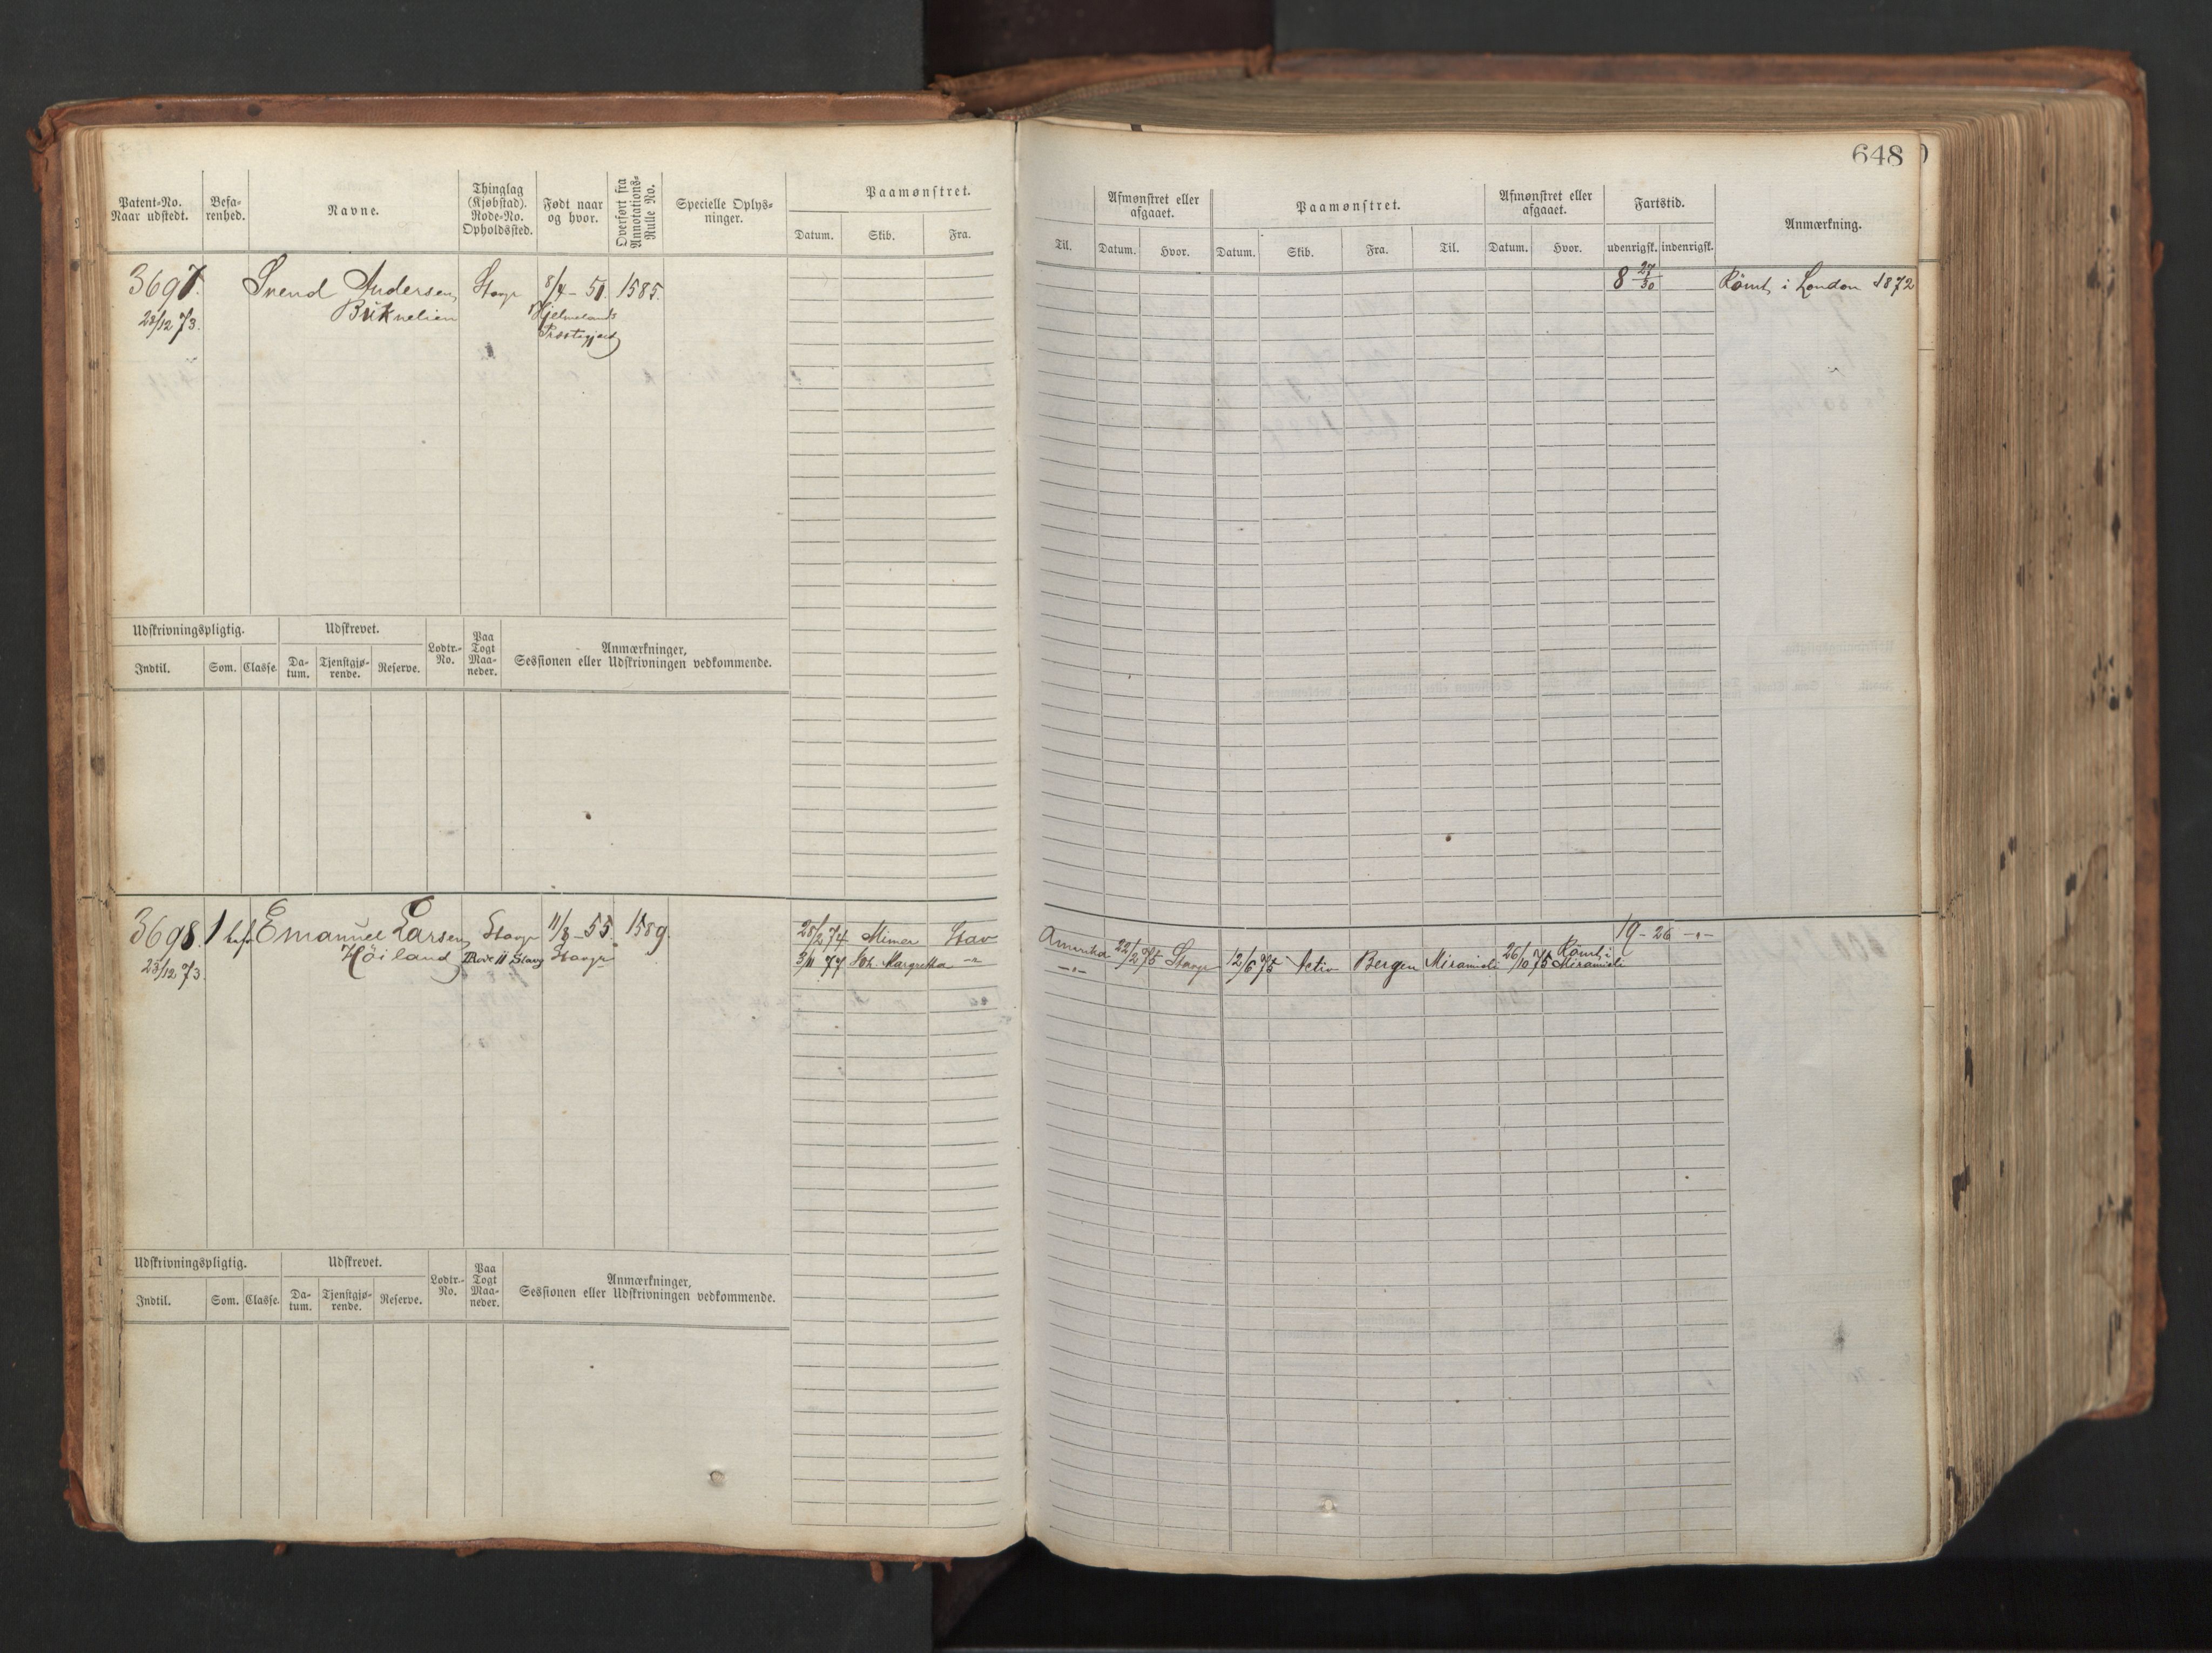 648
Patent-No. Naar udstedt.
Befarenhed.
Navne.
Thinglag (Kjøbstad). Rode-No. Opholdssted.
Født naar og hvor.
Overført fra Annotations-Rulle No.
Specielle Oplysninger.
Paamønstret.
Datum. Skib. Fra.
Til.
Afmønstret eller afgaaet.
Datum. Hvor.
Paamønstret.
Datum. Skib. Fra. Til.
Afmønstret eller afgaaet.
Datum. Hvor.
Fartstid.
udenrigsk. indenrigsk.
Anmærkning.
3697. Svend Andersen Stavgr 8/4-51. 1585. 8 27/30 Römt i London 1872
23/12 73. Hjelmelands
Præstegjeld
Udskrivningspligtig. Udskrevet. Lodtr.-No. Paa Togt Maaneder. Anmærkninger, Sessionen eller Udskrivningen vedkommende.
Indtil. Som. Classe. Datum. Tjenstgjørende. Reserve.
3698. 1 bef Emanuel Larsen Stavgr 11/8-55. 1589. 28/2 74 Mimer Stav Amerika 22/2 75 Stavgr 12/6 75 Activ Bergen Miramichi 26/10 75 Römt i Miramichi 19-26-"-
23/12 73. Höiland Rode 11 Stavg Stavgr 3/11 77 Sk. Margretha -"- -"-
Udskrivningspligtig. Udskrevet. Lodtr.-No. Paa Togt Maaneder. Anmærkninger, Sessionen eller Udskrivningen vedkommende.
Indtil. Som. Classe. Datum. Tjenstgjørende. Reserve.